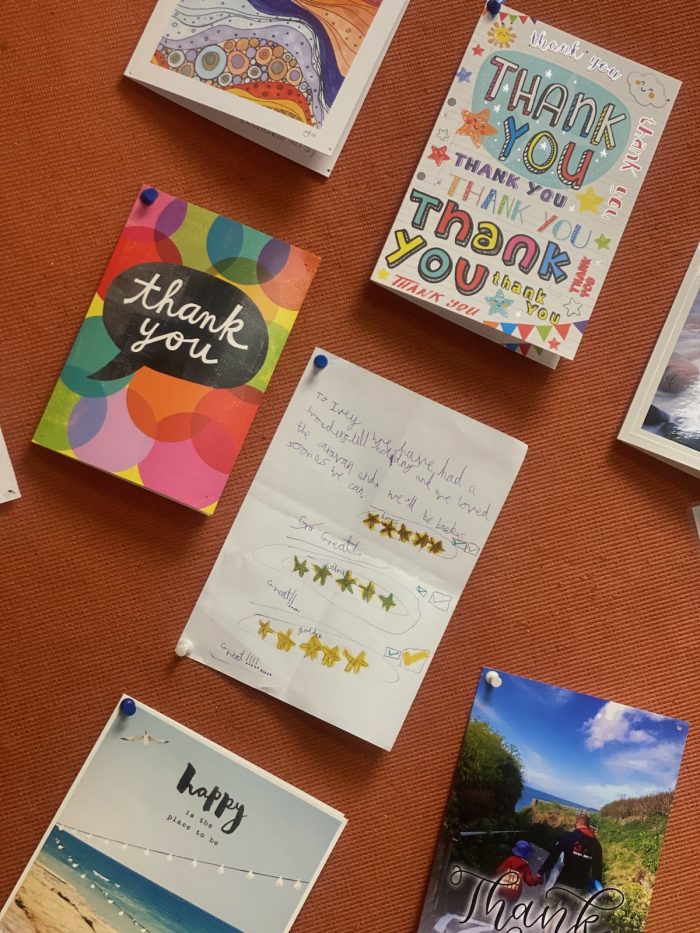 thank you
THANK
YOU
thank you
THANK YOU
THANK YOU
Thank
You
thank
you
THANK
YOU
THANK YOU
thank
you
To Ivey we have had a
wonderfull holiday and we loved
the caravan and we'll be back as
soon as we can.
Great!..
Great!!!....
golden
Great!!!!........
happy
is the
place to be
Thank